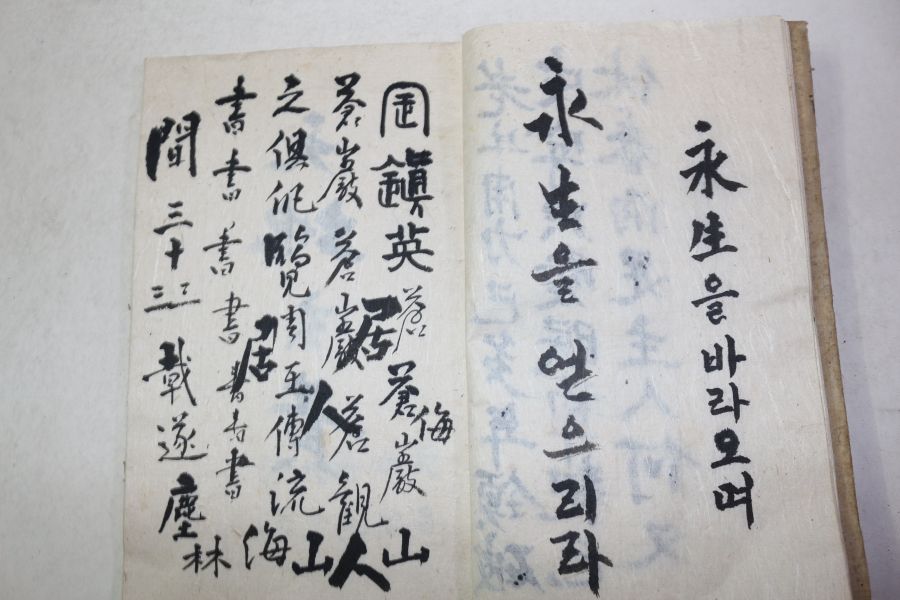 永生을바라오며
永生을얻으리라
鎭英 蒼 蒼巖山
蒼巖 蒼巖 蒼觀
居人
之俱 覽周王傳流
居
書書書書書書書
海山人
間 三十三 載遂塵
林